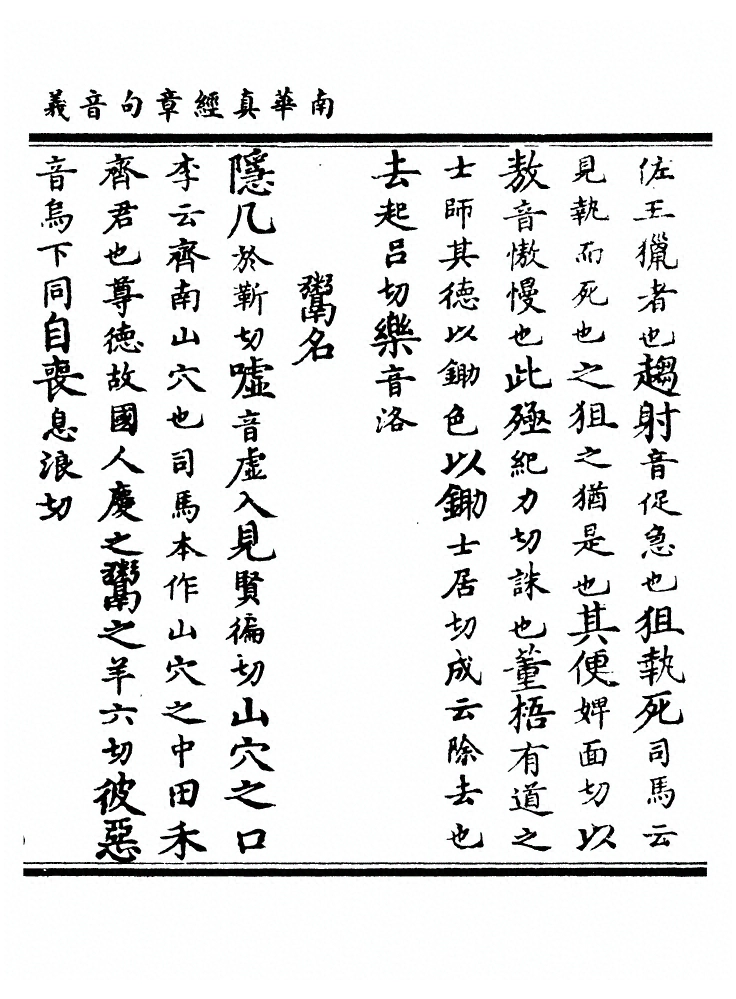 南華真經章句音義
佐王獵者也趨射音促急也狙執死司馬云
見執而死也之狙之猶是也其便婢面切以
敖音慠慢也此殛紀力切誅也董梧有道之
士師其德以鋤色以鋤士居切成云除去也
去起呂切樂音洛
鬻名
隱几於靳切嘘音虛入見賢徧切山穴之口
李云齊南山穴也司馬本作山穴之中田禾
齊君也尊德故國人慶之鬻之羊六切彼惡
音烏下同自喪息浪切